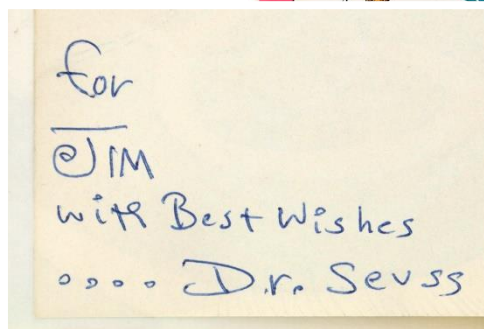 for
JIM
with Best Wishes
.... Dr. Seuss